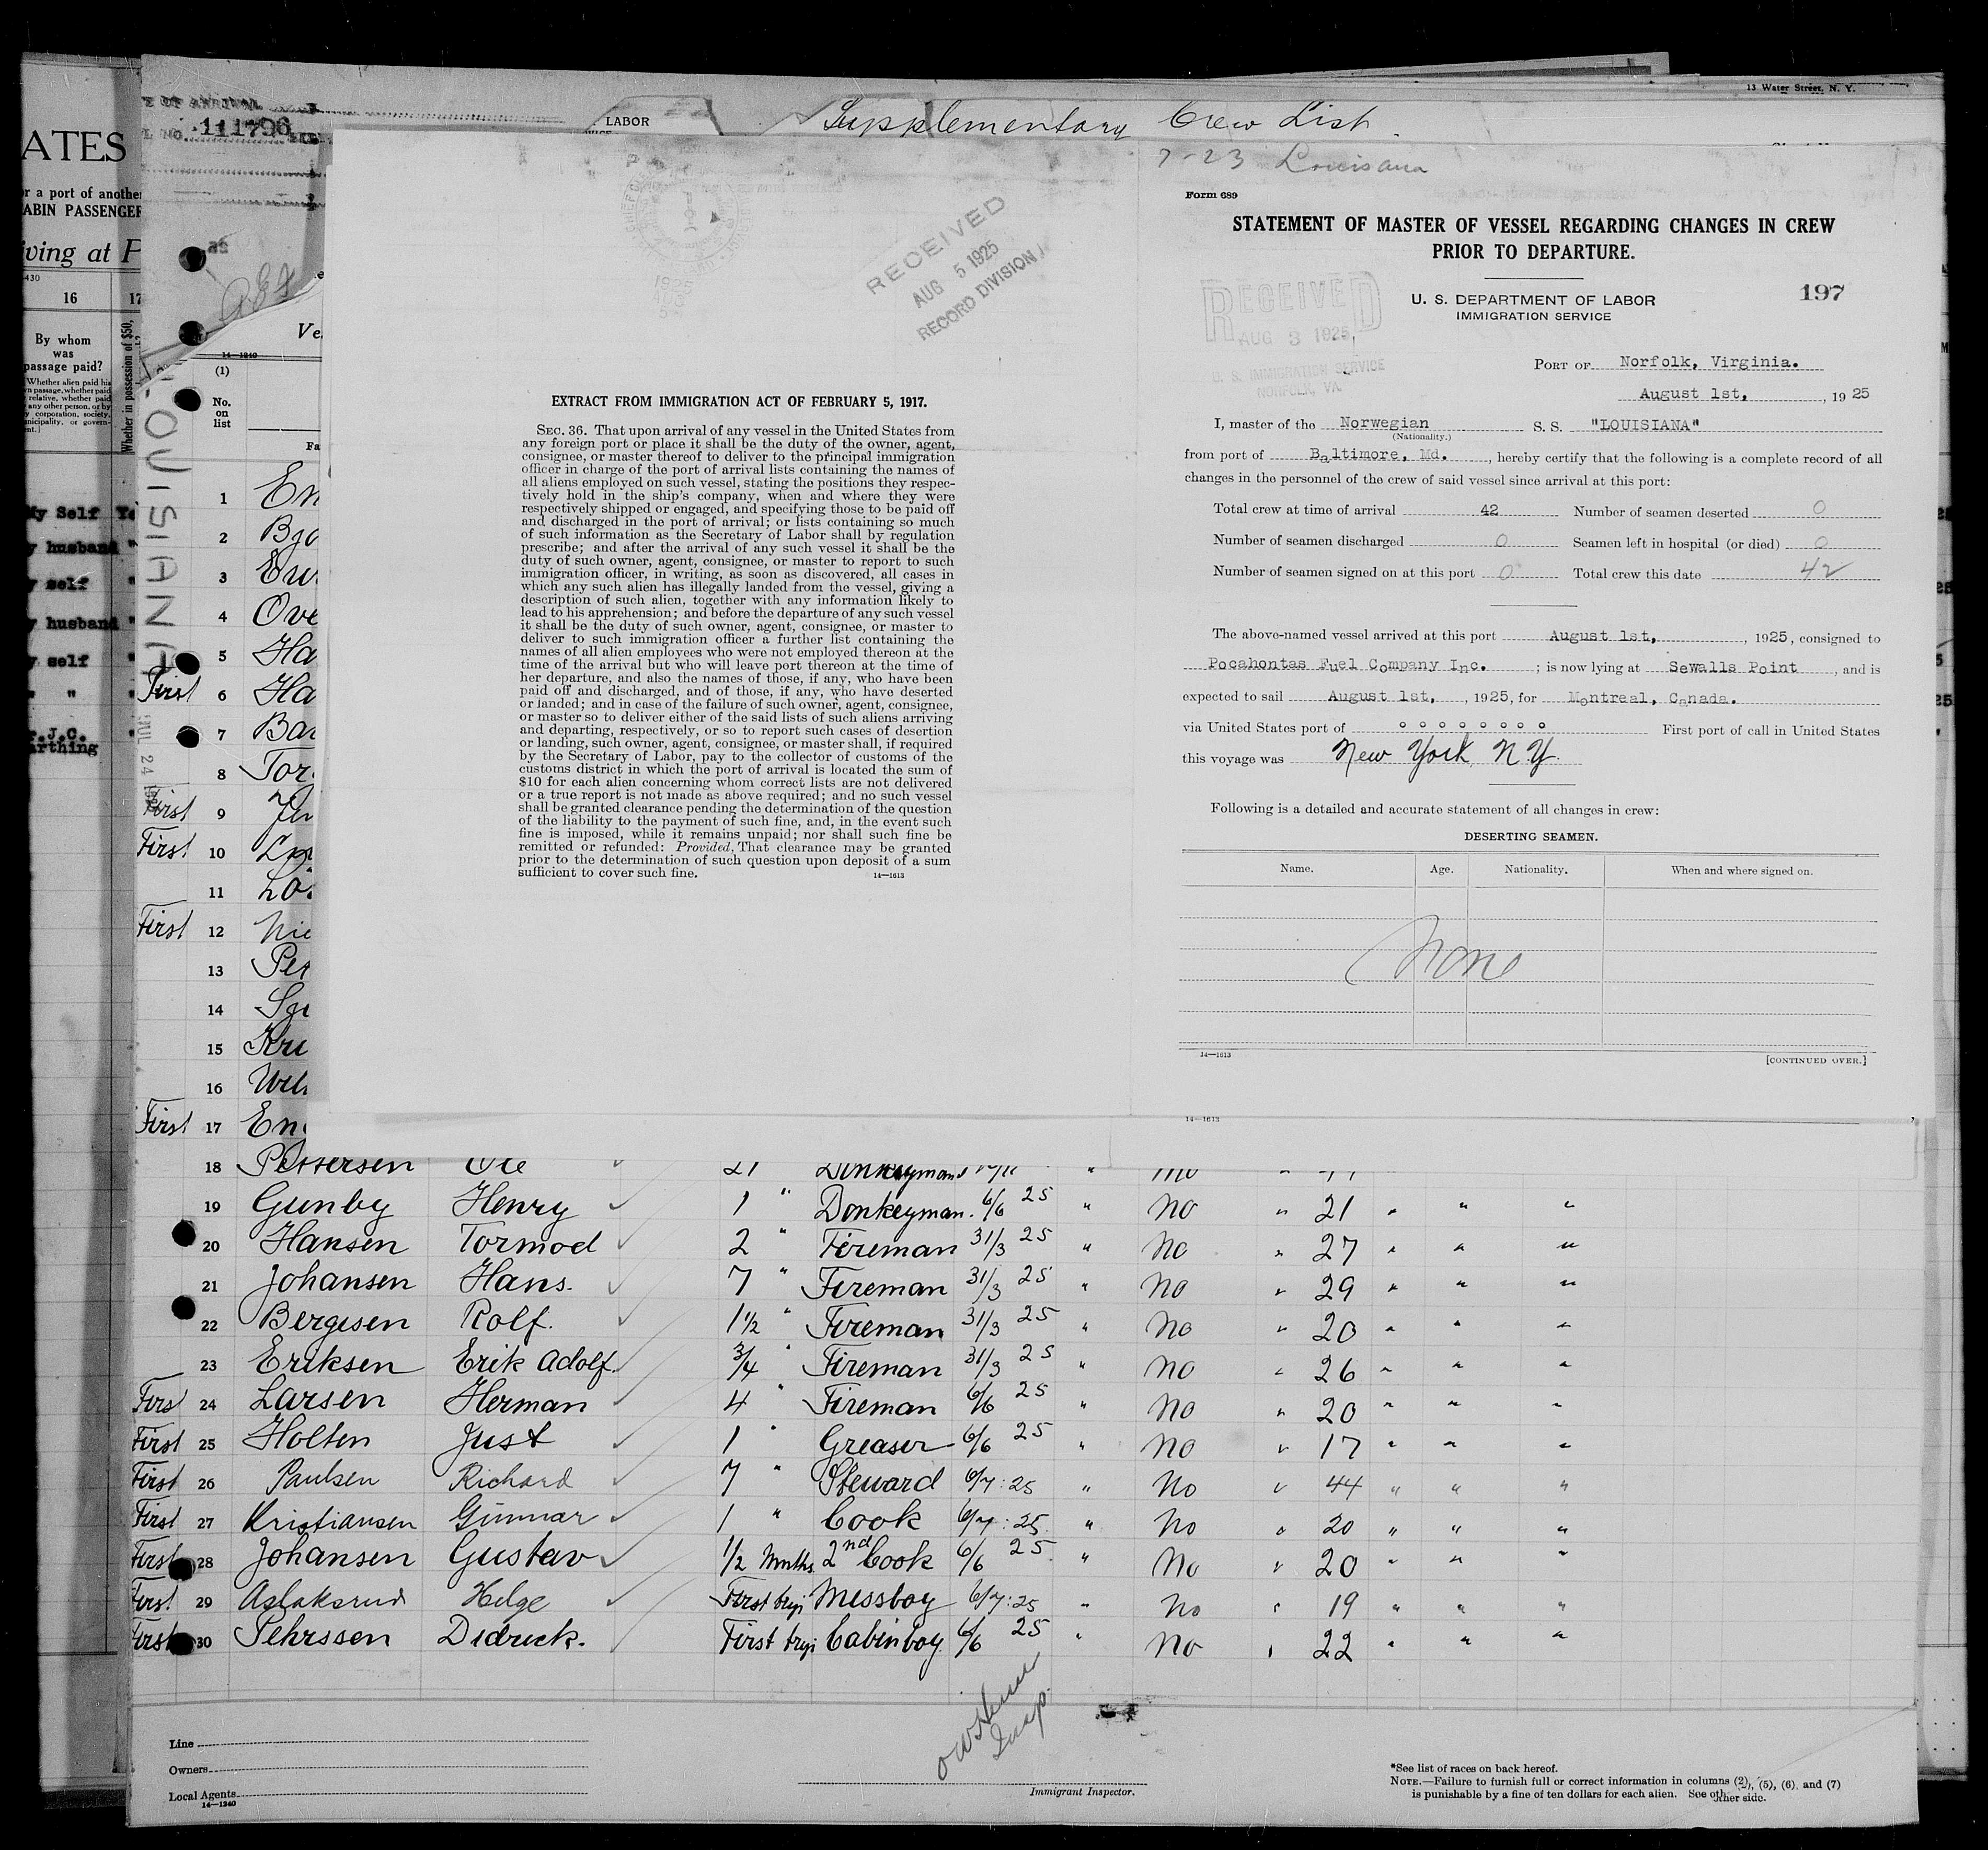 13 Water Street, N. Y.
Supplementary Crew List.
TE OF ARRIVAL
L NO. 111796
LABOR
ATES
or a port of another
ABIN PASSENGER
iving at P
430
16 17
By whom
was
passage paid?
Whether in possession of $50,
My Self
y husband "
y self "
y husband "
y self "
" " "
r.J.C. "
arthing
LOUISIANA
JUL 24
14—1240
(1)
No.
on
list
7-23 Louisiana
Form 689
STATEMENT OF MASTER OF VESSEL REGARDING CHANGES IN CREW
PRIOR TO DEPARTURE.
U. S. DEPARTMENT OF LABOR
IMMIGRATION SERVICE
197
RECEIVED
AUG 3 1925
U. S. IMMIGRATION SERVICE
NORFOLK, VA.
PORT OF Norfolk, Virginia.
August 1st, , 1925
I, master of the Norwegian S. S. "LOUISIANA"
(Nationality.)
from port of Baltimore, Md. , hereby certify that the following is a complete record of all
changes in the personnel of the crew of said vessel since arrival at this port:
Total crew at time of arrival 42 Number of seamen deserted 0
Number of seamen discharged 0 Seamen left in hospital (or died) 0
Number of seamen signed on at this port 0 Total crew this date 42
The above-named vessel arrived at this port August 1st, , 1925, consigned to
Pocahontas Fuel Company Inc. ; is now lying at Sewalls Point , and is
expected to sail August 1st, , 1925, for Montreal, Canada.
via United States port of o o o o o o o o First port of call in United States
this voyage was New York, N.Y.
Following is a detailed and accurate statement of all changes in crew:
DESERTING SEAMEN.
Name. Age. Nationality. When and where signed on.
None
14—1613 [CONTINUED OVER.]
RECEIVED
AUG 5 1925
RECORD DIVISION
1925
AUG
EXTRACT FROM IMMIGRATION ACT OF FEBRUARY 5, 1917.
SEC. 36. That upon arrival of any vessel in the United States from
any foreign port or place it shall be the duty of the owner, agent,
consignee, or master thereof to deliver to the principal immigration
officer in charge of the port of arrival lists containing the names of
all aliens employed on such vessel, stating the positions they respec-
tively hold in the ship's company, when and where they were
respectively shipped or engaged, and specifying those to be paid off
and discharged in the port of arrival; or lists containing so much
of such information as the Secretary of Labor shall by regulation
prescribe; and after the arrival of any such vessel it shall be the
duty of such owner, agent, consignee, or master to report to such
immigration officer, in writing, as soon as discovered, all cases in
which any such alien has illegally landed from the vessel, giving a
description of such alien, together with any information likely to
lead to his apprehension; and before the departure of any such vessel
it shall be the duty of such owner, agent, consignee, or master to
deliver to such immigration officer a further list containing the
names of all alien employees who were not employed thereon at the
time of the arrival but who will leave port thereon at the time of
her departure, and also the names of those, if any, who have been
paid off and discharged, and of those, if any, who have deserted
or landed; and in case of the failure of such owner, agent, consignee,
or master so to deliver either of the said lists of such aliens arriving
and departing, respectively, or so to report such cases of desertion
or landing, such owner, agent, consignee, or master shall, if required
by the Secretary of Labor, pay to the collector of customs of the
customs district in which the port of arrival is located the sum of
$10 for each alien concerning whom correct lists are not delivered
or a true report is not made as above required; and no such vessel
shall be granted clearance pending the determination of the question
of the liability to the payment of such fine, and, in the event such
fine is imposed, while it remains unpaid; nor shall such fine be
remitted or refunded: Provided, That clearance may be granted
prior to the determination of such question upon deposit of a sum
sufficient to cover such fine. 14—1613
14—1613
1 En
2 Bjo
3
4 Ove
5 Ha
First 6 Ha
7
8 Tor
First 9
First 10
11
First 12 Nie
13
14
15 Kri
16
First 17 En
18 Pettersen Ole 21 Donkeyman
19 Gunby Henry 1 " Donkeyman. 6/6 25 " No " 21 " " "
20 Hansen Tormod 2 " Fireman 31/3 25 " No " 27 " " "
21 Johansen Hans. 7 " Fireman 31/3 25 " No " 29 " " "
22 Bergesen Rolf. 1½ " Fireman 31/3 25 " No " 20 " " "
23 Eriksen Erik Adolf. ¾ " Fireman 31/3 25 " No " 26 " " "
Firs 24 Larsen Herman 4 " Fireman 6/6 25 " No " 20 " " "
First 25 Holten Just 1 " Greaser 6/6 25 " No " 17 " " "
First 26 Paulsen Richard 7 " Steward 6/7:25 " No " 44 " " "
First 27 Kristiansen Gunnar 1 " Cook 6/7:25. " No " 20 " " "
First 28 Johansen Gustav 1/2 Mnths. 2nd Cook 6/6 25 " No " 20 " " "
First 29 Aslaksrud Helge First tryi Messboy 6/7:25 " No " 19 " " "
First 30 Pehrssen Didrick. First tryi Cabinboy. 6/6 25 " No " 22 " " "
Insp.
Line
Owners
Local Agents
14—1240
Immigrant Inspector.
*See list of races on back hereof.
NOTE.—Failure to furnish full or correct information in columns (2), (5), (6) and (7)
is punishable by a fine of ten dollars for each alien. See other side.